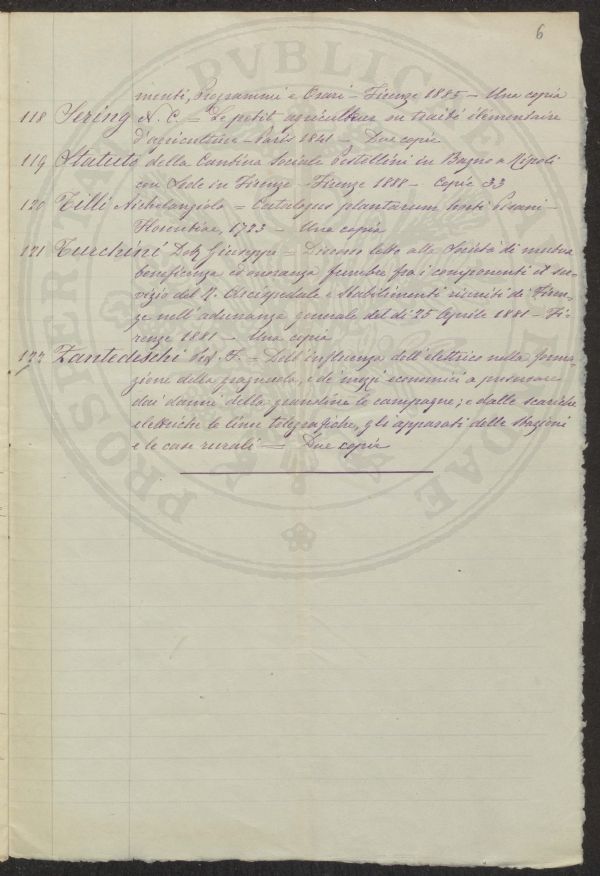 6
menti, Programmi e Orari - Firenze 1885 - Una copia
118 Sering N. C. = Le petit agriculteur ou traité élémentaire
d'agriculture - Paris 1841 - Due copie
119 Statuto della Cantina Sociale Pestellini in Bagno a Ripoli
con Sede in Firenze - Firenze 1888 - Copie 33
120 Tilli Michelangiolo = Catalogus plantarum horti Pisani -
Florentiae, 1723 - Una copia
121 Turchini Dott. Giuseppe = Discorso letto alla Società di mutua
beneficenza ed onoranza funebre fra i componenti il ser-
vizio del R. Arcispedale e Stabilimenti riuniti di Firen-
ze nell'adunanza generale del dì 25 Aprile 1881 - Fi-
renze 1881 - Una copia
122 Zantedeschi F. = Dell'influenza dell'elettrico nella forma-
zione della gragnuola, e de' mezzi economici a preservare
dai danni della grandine le campagne; e dalle scariche
elettriche le linee telegrafiche, gli apparati delle Stazioni
e le case rurali = Due copie
PVBLICAE
PROSPERITATI